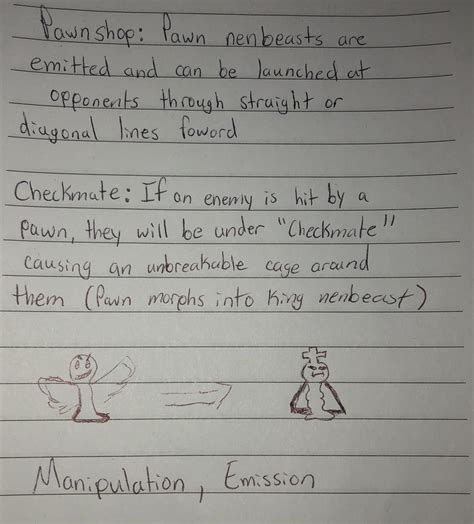 Pawnshop: Pawn nenbeasts are
emitted and can be launched at
opponents through straight or
diagonal lines foword
Checkmate: If an enemy is hit by a
pawn, they will be under "Checkmate"
causing an unbreakable cage around
them (Pawn morphs into King nenbeast)
Manipulation, Emission